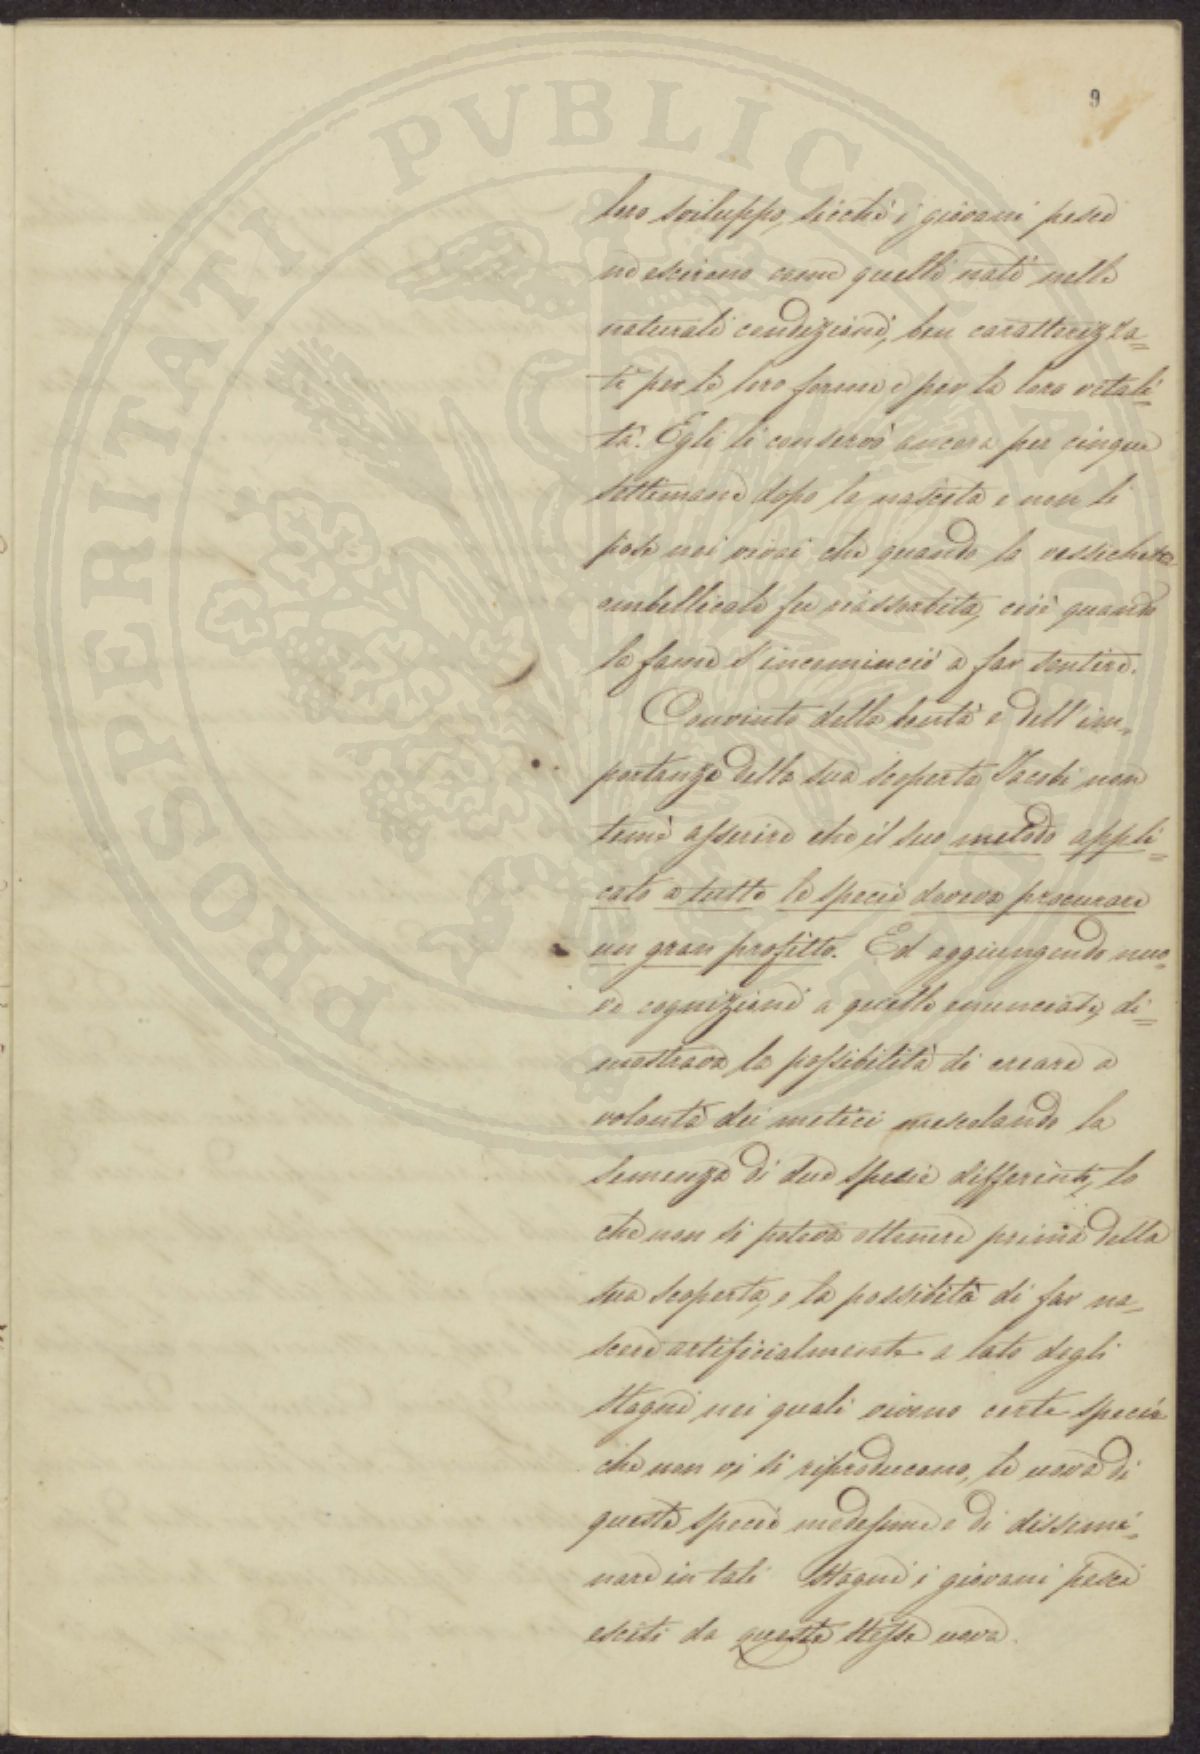 9
PROSPERITATI PVBLICAE AVGENDAE
loro sviluppo, sicchè i giovani pesci
ne escirono come quelli nati nelle
naturali condizioni, ben caratterizza=
ti per le loro forme e per la loro vitali=
tà. Egli li conservò ancora per cinque
settimane dopo la nascita e non li
pose nei vivai che quando la vessichetta
ombellicale fu riassorbita, cioè quando
la fame s'incominciò a far sentire.
Convinto della bontà e dell'im=
portanza della sua scoperta Jacobi non
temè asserire che il suo metodo appli=
cato a tutte le specie doveva procurare
un gran profitto. Ed aggiungendo nuo=
ve cognizioni a quelle enunciate, di=
mostrava la possibilità di creare a
volontà dei metici mescolando la
semenza di due specie differenti, lo
che non si poteva ottenere prima della
sua scoperta, e la possibilità di far na=
scere artificialmente a lato degli
stagni nei quali vivono certe specie
che non vi si riproducono, le uova di
queste specie medesime e di dissemi=
nare in tali stagni i giovani pesci
esciti da queste stesse uova.